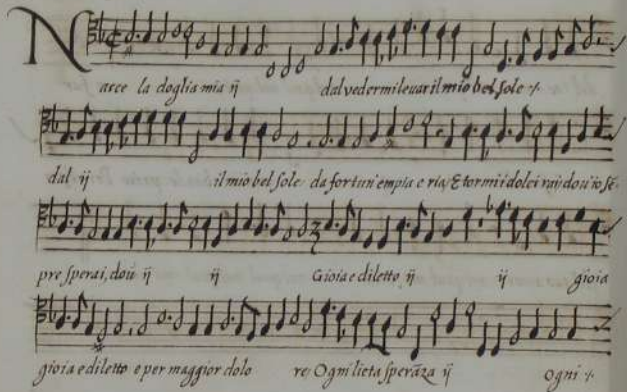 Nasce la doglia mia ij dal vedermi levar il mio bel sole ·/.
dal ij il mio bel sole da fortun' empia e ria, E tormi i dolci rai, dov' io sẽ-
pre sperai, dou ij ij Gioia e diletto ij ij gioia
gioia e diletto e per maggior dolo re Ogni lieta sperãza ij Ogni ·/.